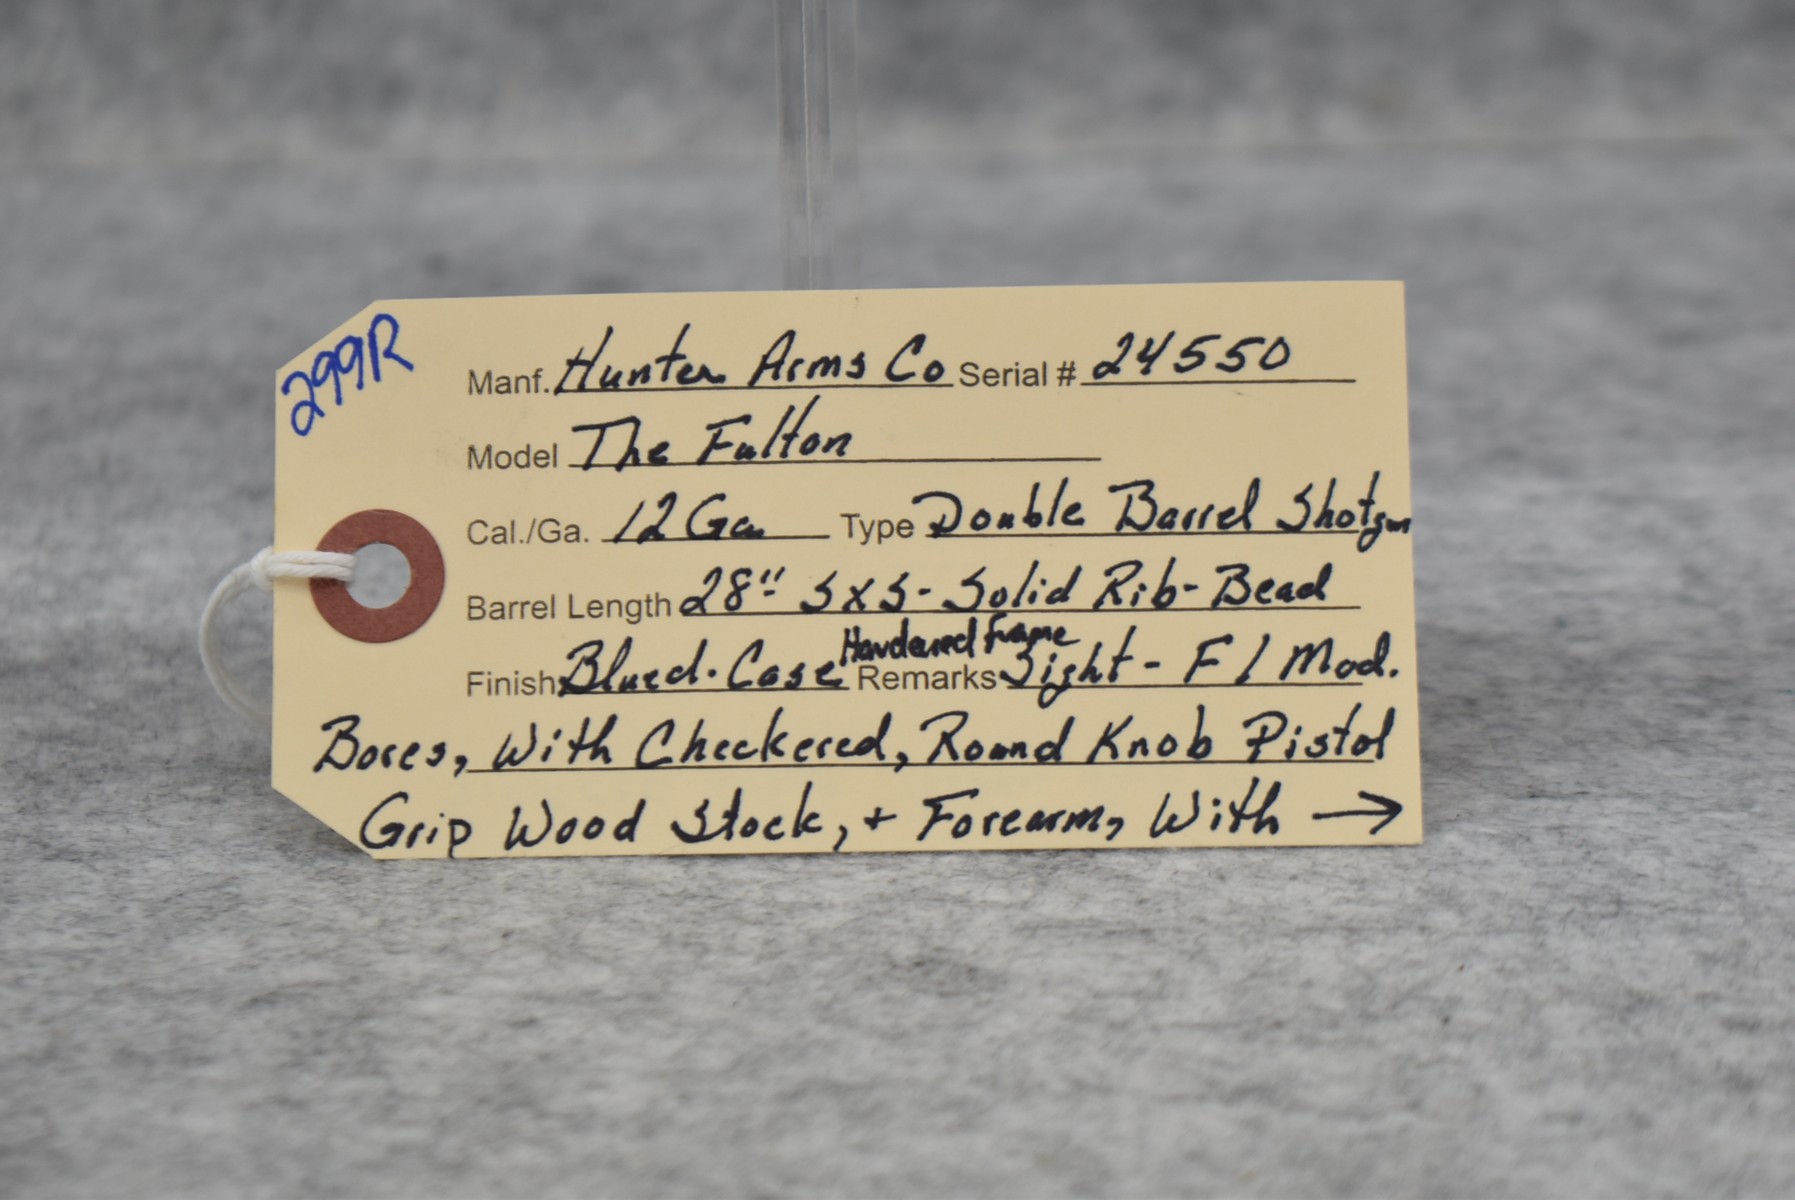 299R
Manf. Hunter Arms Co Serial # 24550
Model The Fulton
Cal./Ga. 12 Ga Type Double Barrel Shotgun
Barrel Length 28" SxS - Solid Rib - Bead
Hardened frame
Finish Blued. Case Remarks Sight - F / Mod.
Bores, With Checkered, Round Knob Pistol
Grip Wood Stock, + Forearm, With →